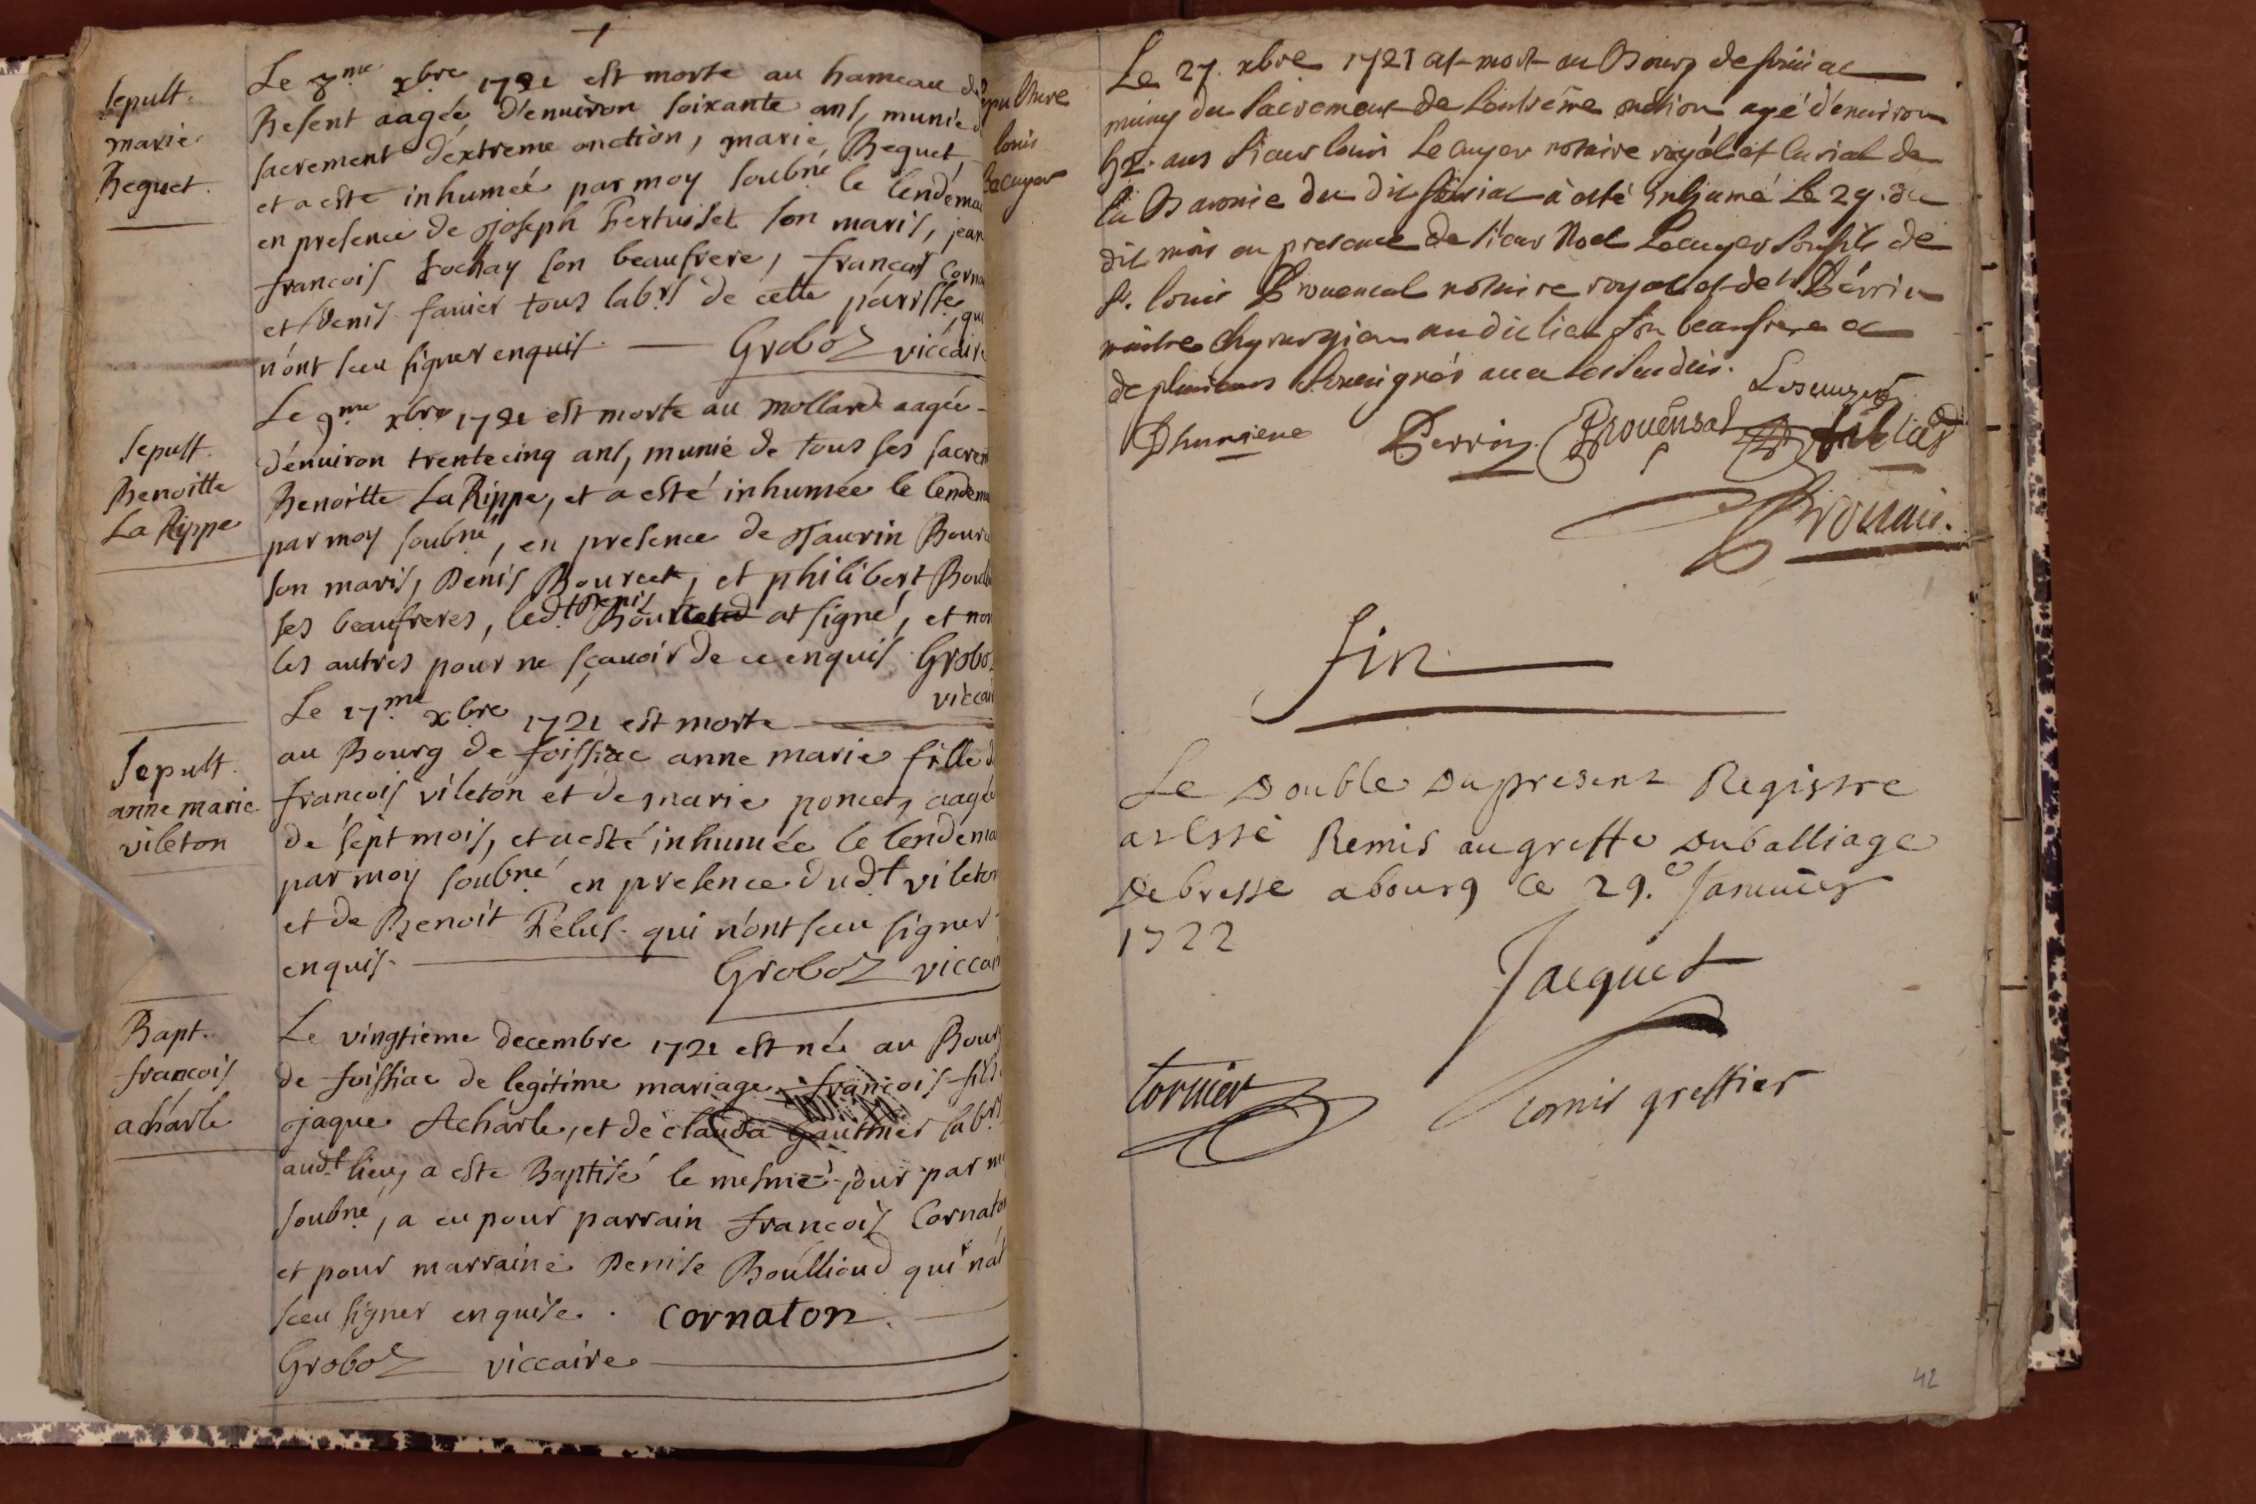 Sepult.
marie
Beguet.
Le 8.me xbre 1721 est morte au hameau de
Besent aagée d'enuiron soixante ans, munie du
sacrement d'extreme onction, marie Beguet
et a esté inhumée par moy soubné le lendemai
en presence de Joseph Pertuiset son maris, jean
francois Fochay son beaufrere, francois Corna
et Denis fauier tous labrs de cette parisse, qui
n'ont sceu signer enquis. Groboz viccaire
Sepult.
Benoitte
La Rippe
Le 9.me xbre 1721 est morte au mollard aagée
d'enuiron trentecinq ans, munie de tous ses sacrem
Benoitte La Rippe, et a esté inhumée le lendema
par moy soubné, en presence de Taurin Bource
son maris, Denis Bourcet, et philibert Boul
ses beaufreres, led.t Denis at signé, et non
les autres pour ne sçauoir de ce enquis. Groboz
viccai
Sepult.
anne marie
vileton
Le 17.me xbre 1721 est morte
au Bourg de foissiac anne marie fille d
francois vileton et de marie poncet, aagée
de sept mois, et a esté inhumée le lendema
par moy soubné en presence dudt vileton
et de Benoit Felus. qui n'ont sceu signer
enquis. Groboz viccai
Bapt.
francois
acharle
Le vingtieme decembre 1721 est né au Bourg
de foissiac de legitime mariage francois fils
jaque Acharle, et de clauda gauthier labrs
audt lieu, a esté Baptisé le mesme jour par m
soubné, a eu pour parrain francois Cornaton
et pour marraine Denise Boullioud qui n'at
sceu signer enquise. cornaton
Groboz viccaire
sepulture
louis
Lecuyer
Le 27. xbre 1721 at mort au Bourg de foissiac
muny du sacrement de Lentréme onction agé d'enuiron
ans sieur louis Lecuyer notaire royal et curial de
la Baronie du dit foissiac à esté inhumé Le 29. du
dit mois en presence de sieur Noel Lecuyer son fils de
sr. louis Prouencal notaire royal et de sr. Perrin
maitre chyrurgien audit lieu son beaufrere et
de plusieurs
Perrin Prouensal
fin
Le Double Du present Registre
a esté Remis au greffe Du balliage
De bresse a bourg ce 29.e Januier
1722
Jacquet
Cornier
Comis greffier
42